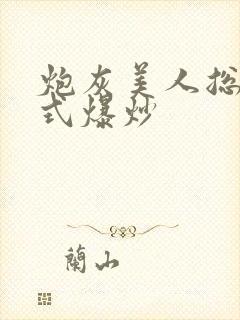 炮灰美人揽
式爆炒
蘭山